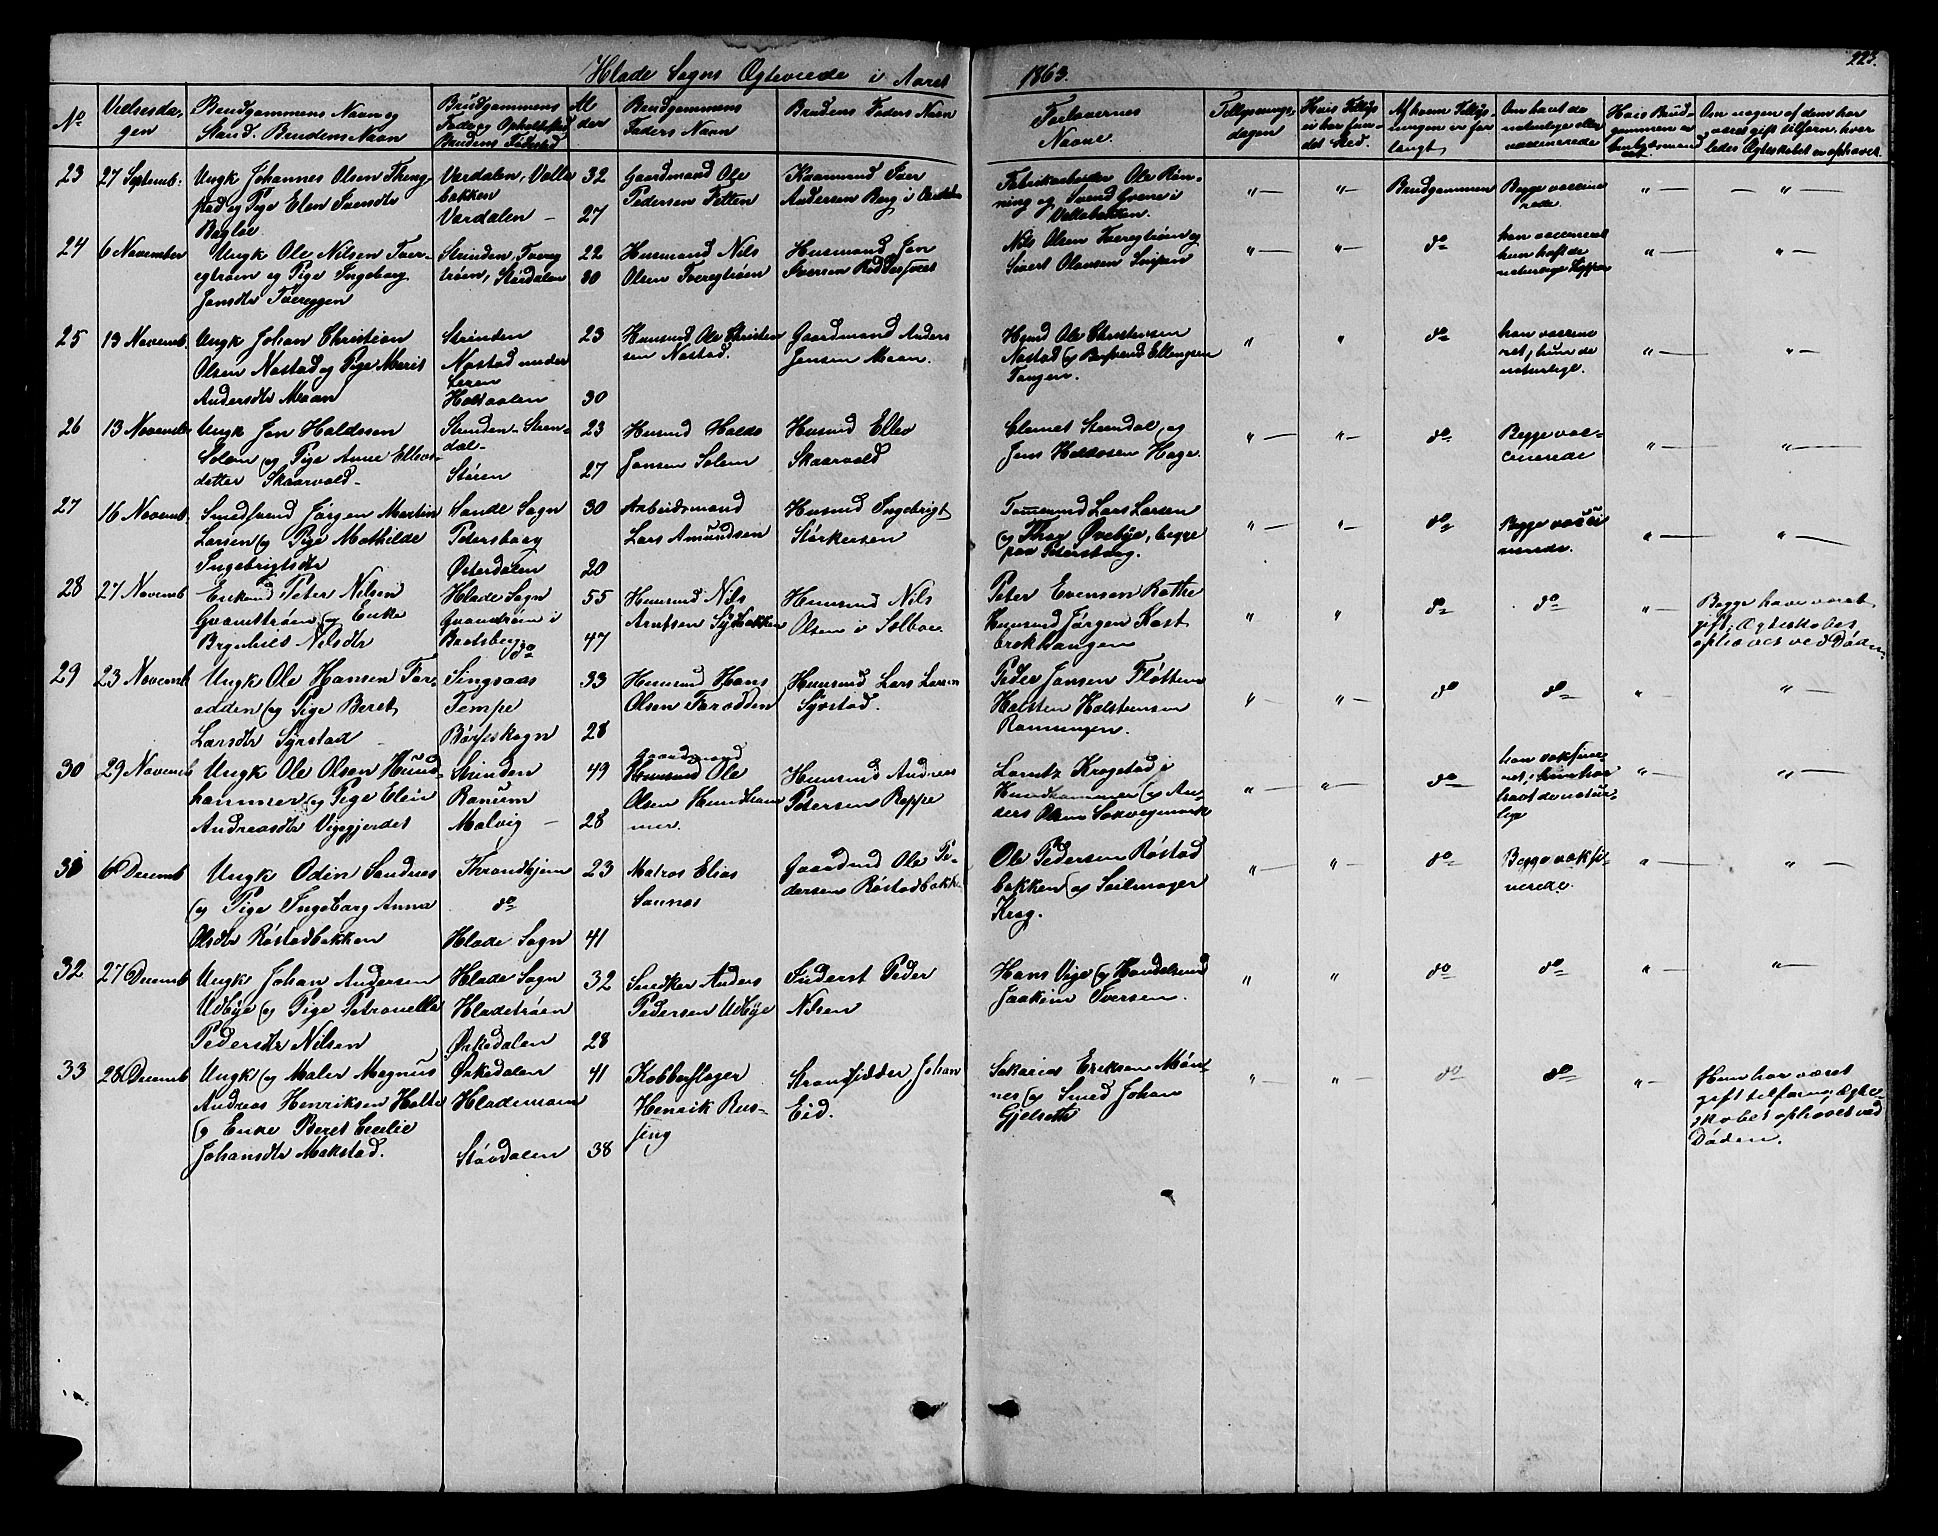 Hlade Sogns Egteviede i Aaret 1863.
223.
No
Vielsesda-
gen
Brudgommens Navn og
Stand. Brudens Navn
Brudgommens
Føde og Opholdssted
Brudens Fødested
Al
der
Brudgommens
Faders Navn
Brudens Faders Navn
Forlovernes
Navne.
Tillysnings-
dagen
Hvis Tillys
ei har fun-
det Sted.
Af hvem Tillys-
ningen er for
langt
Om havt de
naturlige eller
vaccinerede
Hvis Brud-
gommen er
Om nogen af dem har
været gift tilforn, hvor
ledes Egteskabet er ophævet.
23
27 Septemb:
Ungk Johannes Olsen
og Pige Elen
Værdalen,
bakken
Værdalen -
32
27
Gaardmand Ole
Pedersen
Iver
Andersen Berg i
Fabrikarbeider Ole Røn-
ning og Svend Grene i
"
"
Brudgommen
Begge vaccine
rede
"
"
24
6 November
Ungk Ole Nilsen Tver-
egtrøen og Pige Ingeborg
Jonsdtr Tvereggen
Strinden, Tvereg
trøen, Størdalen
22
30
Husmand Nils
Olsen Tveregtrøen
Husmand Jon
Iversen
Nils Olsen Tveregtrøen og
Sivert Olausen
"
"
do
han vaccineret
hun haft de
naturlige Kopper
"
"
25
13 Novemb.
Ungk Johan Christian
Olsen Nostad og Pige Marit
Andersdtr Moan
Strinden
Nostad under
Leren
Holtaalen
23
30
Huusmd Ole Christen
sen Nostad.
Gaardmand Anders
Jensen Moan.
Hsmd Ole Christensen
Nostad og Ellingsen
Tangen.
"
"
do
han vaccine
ret, hun de
naturlige.
"
"
26
13 Novemb
Ungk Jon Haldosen
Solem og Pige Anne Ellevs-
datter Skaarvold.
Strinden Stren-
dal-
Støren
23
27
Husmd Haldo
Jonsen Solem
Husmd Ellev
Skaarvold
Clemet Strendal, og
Jens Haldosen Hage.
"
"
do
Begge vac-
cinerede
"
"
27
16 Novemb.
Smedsvend Jørgen Martin
Larsen og Pige Mathilde
Ingebrigtsdtr
Sande Sogn
Petersborg
Østerdalen
30
20
Arbeidsmand
Lars Amundsen
Husmd Ingebrigt
Størkersen
Tømmermd Lars Larsen
og Thor Øvebye, begge
paa Petersborg.
"
"
do
Begge vacci
nerede.
"
"
28
27 Novemb
Enkemd Peter Nilsen
Qvamstrøen og Enke
Nilsdtr
Hlade Sogn
i
Baatsberg
do
55
47
Huusmd Nils
Arntsen
Huusmd Nils
Olsen i Solboe.
Peter Evensen Rothe
Huusmd Jørgen Kast
brekhaugen
"
"
do
do
"
Begge have været
gift; Egteskabet
ophævet ved Døden.
29
23 Novemb
Ungk Ole Hansen For-
odden og Pige Beret
Larsdtr Syrstad
Singsaas
Tempe
Børseskogn
33
28
Huusmd Hans
Olsen Forodden
Huusmd Lars Larsen
Syrstad.
Peder Jonsen Fløttem
Holsten Holstensen
Rønningen.
"
"
do
do
"
"
30
29 Novemb
Ungk Ole Olsen Hund-
hammer og Pige Elen
Andreasdtr Vigegjerdet
Strinden
Ranum
Malvig -
49
28
Gaardmand
Huusmd Ole
Olsen Hundham
mer.
Huusmd Andreas
Petersen Reppe
Lorntz Krogstad i
Hundhammer og An-
ders Olsen
"
"
do
han vakcine-
ret; hun har
havt de natur-
lige
"
"
31
6 Decemb
Ungk Odin Sandnes
og Pige Ingeborg Anna
Olsdtr Røstadbakken
Throndhjem
do
Hlade Sogn
23
41
Matros Elias
Sannes
Gaardmd Ole Pe-
dersen Røstadbakk.
Ole Pedersen Røstad
bakken og Seilmager
Krog.
"
"
do
Begge vaksi-
nerede.
"
"
32
27 Decemb
Ungk Johan Andersen
Udbye og Pige Petronella
Pedersdtr Nilsen
Hlade Sogn
Hladetrøen
Ørkedalen
32
28
Snedker Anders
Pedersen Udbye
Inderst Peder
Nilsen
Hans Vige og Handelsmd
Joakim Iversen.
"
"
do
do
"
"
33
28 Decemb
Ungk og Maler Magnus
Andreas Henriksen Holte
og Enke Beret Cecilie
Johansdtr Mokstad.
Ørkedalen
Hlademoen
Størdalen
41
38
Kobberslager
Henrik Rus-
sing
Strandsidder Johan
Eid.
Sakarias Eriksen Møn-
nes og Smed Johan
Gjelseth
"
"
do
do
"
Hun har været
gift tilforn; Egte-
skabet ophævet ved
Døden.